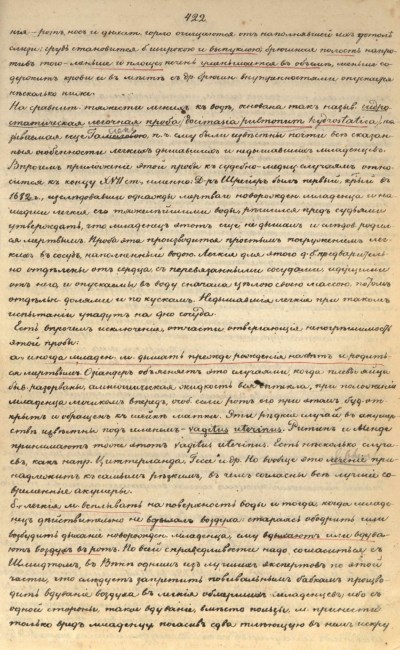 422.
ния – ротъ, носъ и дыхат. горло очищаются отъ наполнявшей ихъ дотолѣ
слизи; грудь становится б. широкою и выпуклою; брюшная полость напро-
тивъ того – меньше и площе; печень уменьшается въ объемѣ, меньше со-
держитъ крови и въ мѣстѣ съ др. брюшн. внутренностями опускается
нѣсколько ниже.
На сравнит. тяжести легкихъ къ водѣ, основана такъ назыв. гидро-
статическая легочная проба (docimasia pulmonum hydrostatica), на-
зываемая еще Галеновою, п. ч. ему были извѣстны почти всѣ сказан-
ныя особенности легкихъ дышавшихъ и недышавшихъ младенцевъ.
Впрочемъ приложеніе этой пробы къ судебно-медиц. случаямъ отно-
сится къ концу XVII ст. именно. Д-ръ Шрейеръ былъ первый, кот-рый въ
1682 г., изслѣдовавши однажды мертваго новорожден. младенца и на-
шедши легкія его тяжелѣйшими воды, рѣшился предъ судьями
утверждать, что младенецъ этотъ еще не дышалъ и отъ того родил-
ся мертвымъ. Проба эта производится простымъ погруженіемъ лег-
кихъ въ сосудъ, наполненный водою. Легкія для этого д. б. предваритель-
но отдѣлены отъ сердца, съ перевязанными сосудами идущими
отъ него и опускаемы въ воду сначала цѣлою своею массою, потомъ
отдѣльно долями и по кускамъ. Недышавшія легкія при такомъ
испытаніи упадутъ на дно сосуда.
Есть впрочемъ исключенія, отчасти отвергающія непогрѣшимость
этой пробы:
а., иногда младен. м. дышать прежде рожденія на свѣтъ и родить-
ся мертвымъ. Озіандеръ объясняетъ это случаями, когда плевы яйца
быв. разорваны, амніотическая жидкость вся вытекла, при положеніи
младенца личикомъ впередъ, особ. если ротъ его при этомъ буд. от-
крытъ и обращенъ къ шейкѣ матки. Этотъ рѣдкій случай въ акушер-
ствѣ извѣстны подъ именемъ – vagitus uterinus. Ритгенъ и Менде
принимаютъ тоже этотъ vagitus uterinus. Есть нѣсколько случа-
евъ, какъ напр. Циттерланда, Геса и др. Но вообще это явленіе при-
надлежитъ къ самымъ рѣдкимъ, въ чемъ согласны всѣ лучшіе со-
временные акушеры.
б., легкія м. всплывать на поверхность воды и тогда, когда младе-
нецъ дѣйствительно не вдыхалъ воздуха: стараясь ободрить или
возбудить дыханіе новорожден. младенца, ему вдыхаютъ или вдува-
ютъ воздухъ въ ротъ. По всей справедливости надо согласиться съ
Шмидтомъ, въ Вѣнѣ однимъ изъ лучшихъ экспертовъ по этой
части, что слѣдуетъ запретить повивальнымъ бабкамъ произво-
дить вдуваніе воздуха въ легкія обмершихъ младенцевъ; ибо съ
одной стороны, такое вдуваніе, вмѣсто пользы, м. принести
только вредъ младенцу, погасивъ едва тлѣющую въ немъ искру